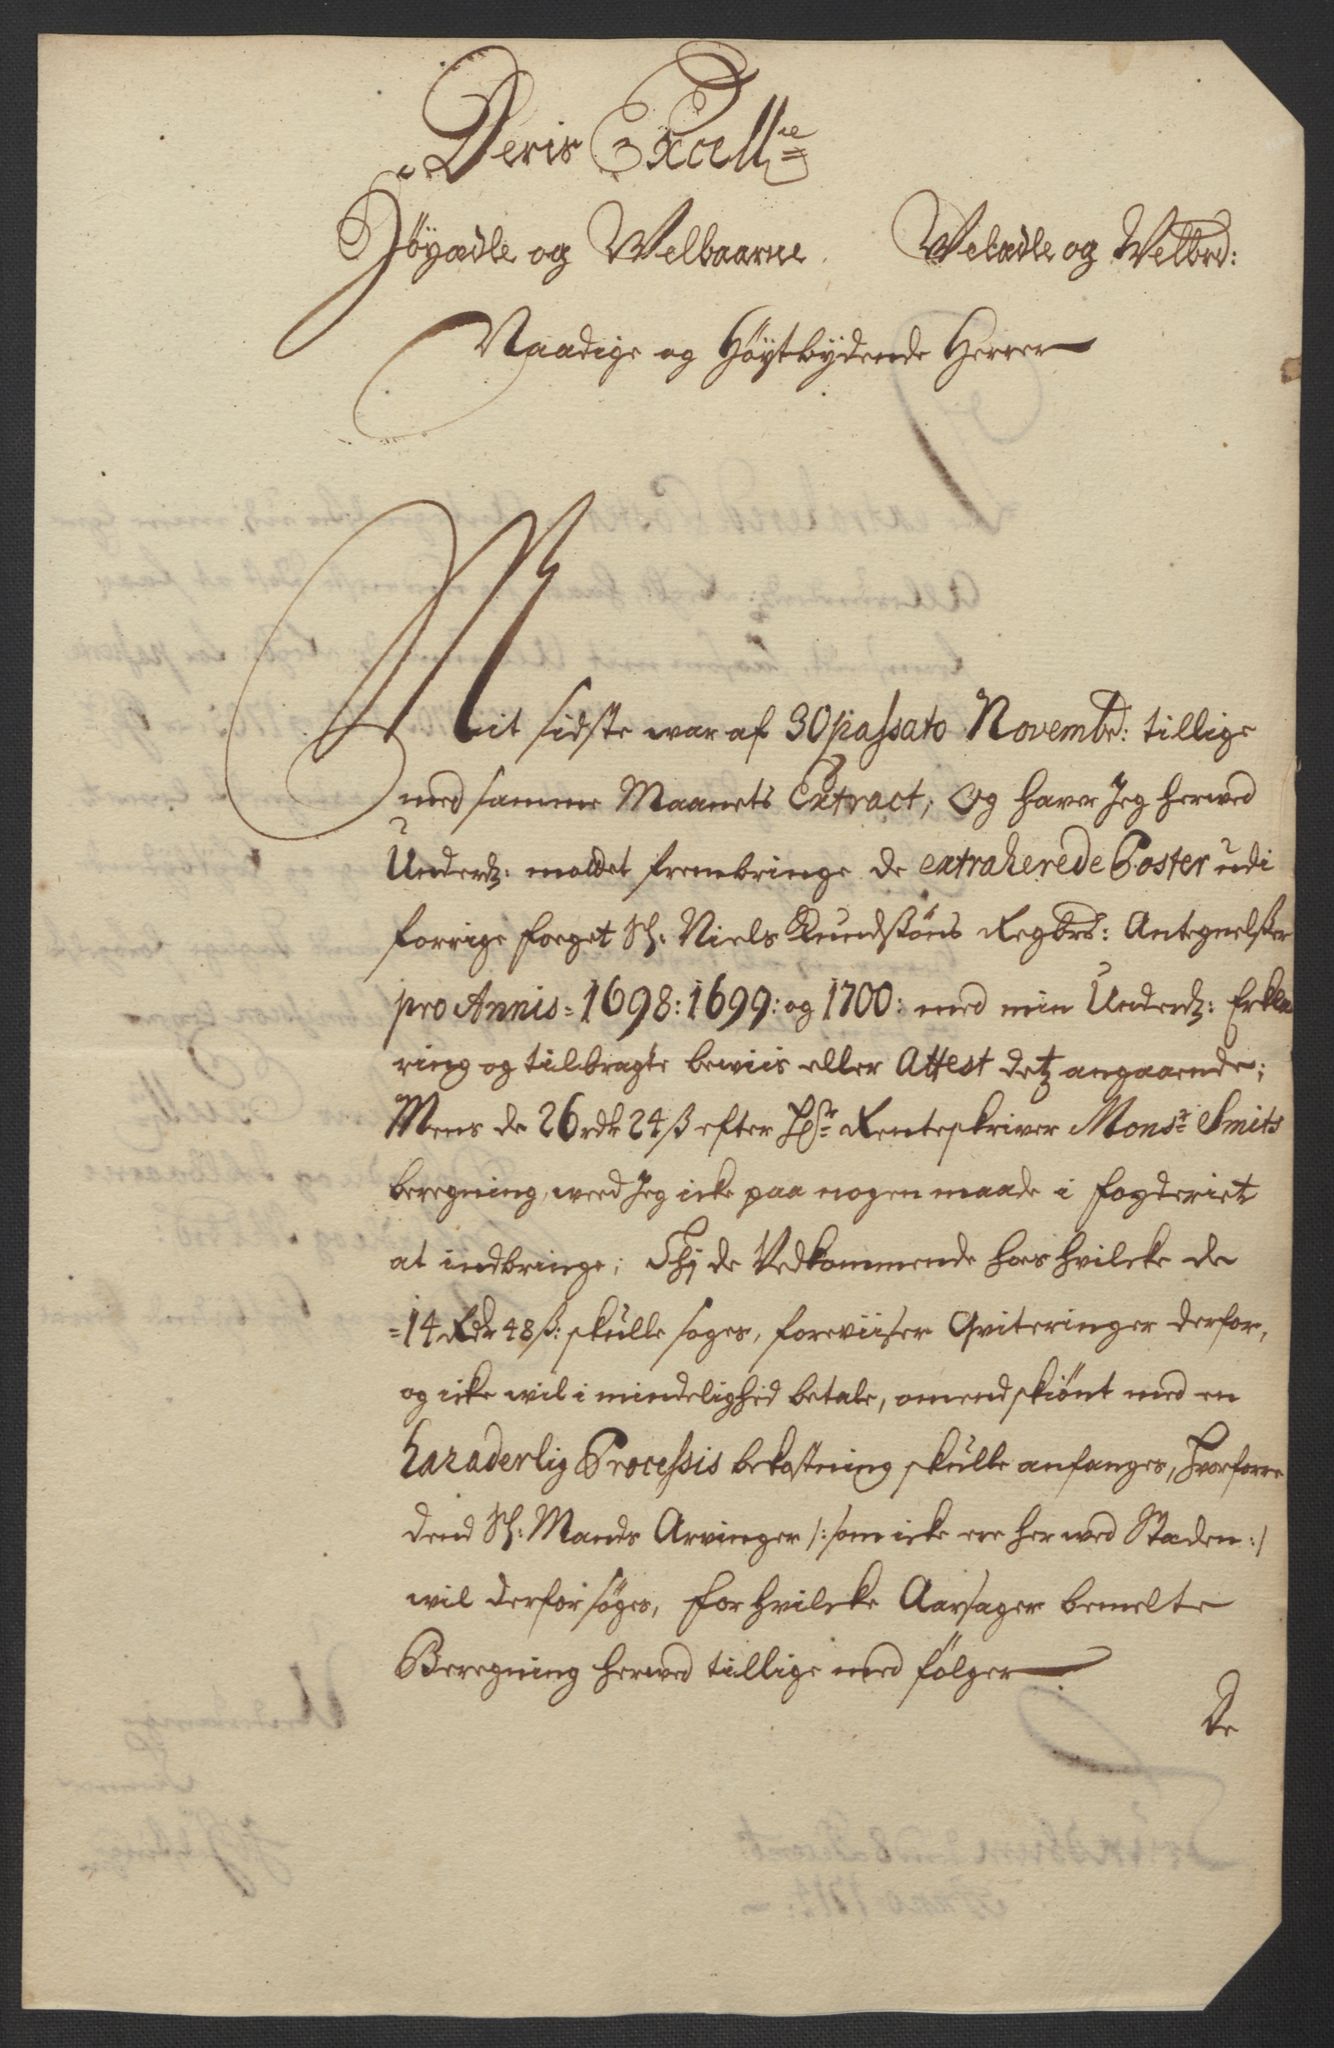 Deris Excell:ce
Höyædle og Welbaarne Welædle og Welbrd:
Naadige og Höytbydende Herrer
Mit sidste war af 30 passato Novembr: tillige
med samme Maanets Extract, Og haver Jeg herved
Underd: maadet frembringe de extraherede Poster udi
forrige foeget Sl: Niels Knudssöns Regbrs: Antegnelsser
pro Annis = 1698: 1699: og 1700: med min Underd: Erklæ
ring og tilbragte beviis eller Attest detz angaaende;
Mens de 26 rdr 24 ß efter Hr: Renteskriver Monsr: Smits
beregning, weed Jeg icke paa nogen maade i fogderiet
at indbringe; Thj de Vedkommende hoes hvilcke de
=14 Rdr 48 ß: skulle søges, foreviiser Qviteringer derfor,
og icke wil i mindelighed betale, omendskiönt med en
hazaderlig Processis bekostning skulle anfanges, Hvorforre
dend Sl: Mands Arvinger /: som icke ere her wed Staden :/
wil derfor söges, for hvilcke Aarsager bemelte
Beregning herwed tillige med fölger
De